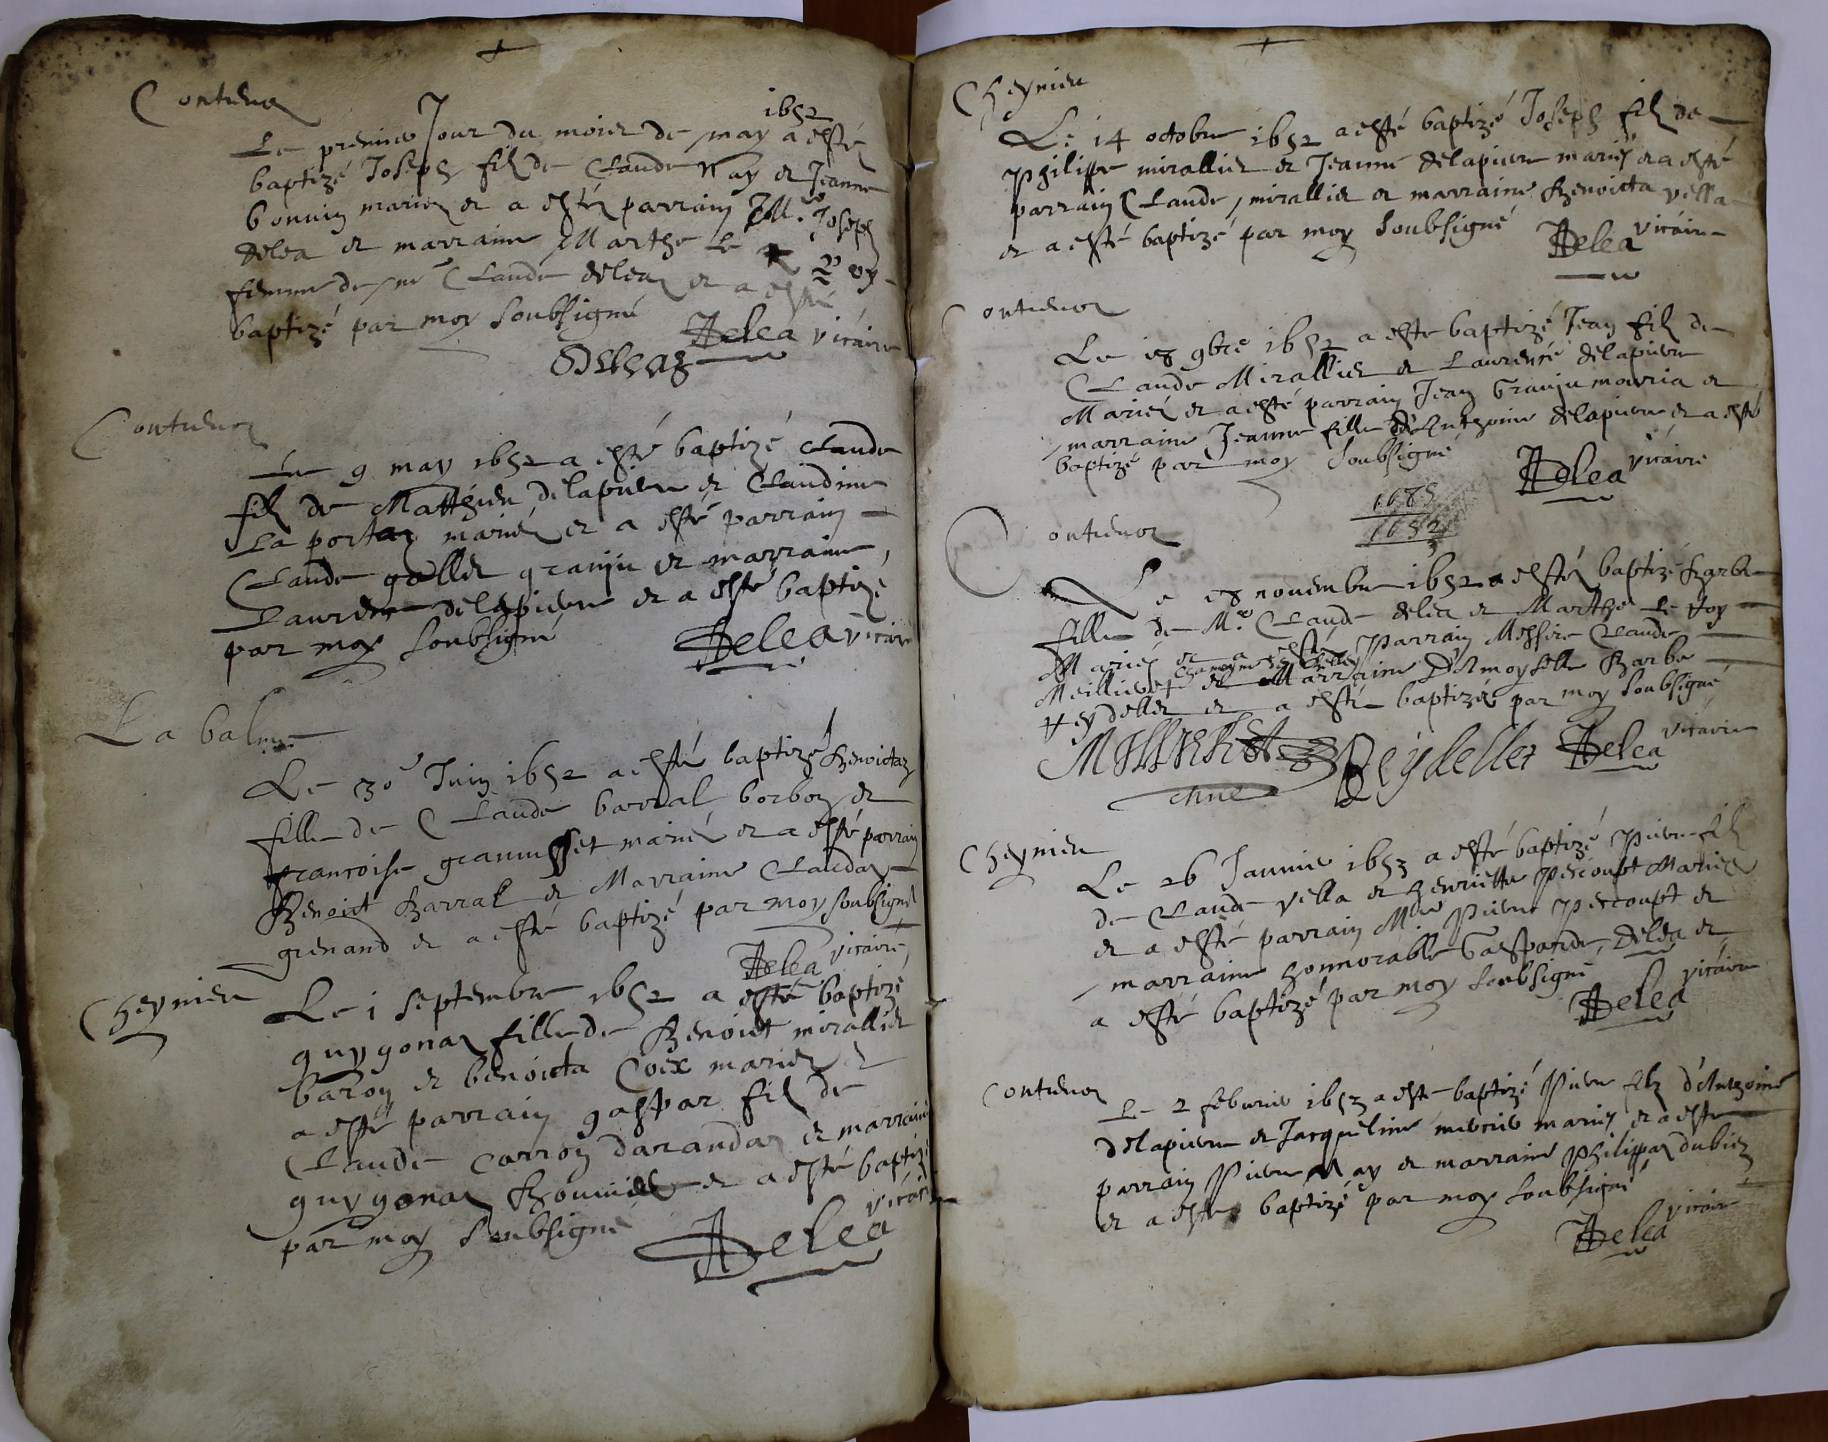 Contrevoz
1652
Le premier Jour du mois de may a esté
baptizé Joseph filz de Claude Nay et Jeanne
bonnin mariez et a esté parrain M.e Joseph
delea et marraine Marthe Le Voy
femme de m.e Claude deleaz et a esté
baptizé par moy soubsigné
Delea vicaire
Deleaz
Contrevoz
Le 9 may 1652 a esté baptizé Claude
filz de Matthieu delapierre et Claudine
La portaz mariez et a esté parrain
Claude gollet granju et marraine
Laurence delapierre et a esté baptizé
par moy soubsigné
Delea vicaire
La balme
Le 30e Juin 1652 a esté baptizé benoictaz
fille de Claude barral borbon et
francoise grammusset mariez et a esté parrain
Benoict Barral et Marraine Claudaz
grenand et a esté baptizé par moy soubsigné
Delea vicaire
Cheynieu
Le i septembre 1652 a esté baptizé
guygonaz fille de Benoict mirallier
baron et benoicta Coex mariez et
a esté parrain gaspar filz de
Claude Carron darandaz et marraine
guygonaz et a esté baptizé
par moy soubsigné
Delea vicaire
Cheynieu
Le 14 octobre 1652 a esté baptizé Joseph filz de
Philippe mirallier et Jeanne delapierre mariez et a esté
parrain Claude mirallier et marraine Benoicta vella
et a esté baptizé par moy soubsigné
Delea vicaire
Contrevoz
Le 9bre 1652 a esté baptizé Jean filz de
Claude Mirallier et Laurence delapierre
Mariez et a esté parrain Jean Granju et
marraine Jeanne fille d'Anthoine delapierre et a esté
baptizé par moy soubsigné
Delea vicaire
1685
1652
Contrevoz
Le novembre 1652 a esté baptizé Barbe
fille de M.e Claude delea et Marthe Le Voy
Mariez et a esté Parrain Messire Claude
Meillieret chanoyne de Belley et Marraine Damoyselle Barbe
Reydellet et a esté baptizée par moy soubsigné
Meillieret Reydellet Delea vicaire
chne
Cheynieu
Le 26 Janvier 1653 a esté baptizé Pierre filz
de Claude vella et henriette Percoupt Mariez
et a esté parrain M.e Pierre Percoupt et
marraine honnorable Gasparde delea et
a esté baptizé par moy soubsigné
Delea vicaire
Contrevoz
Le 2 febvrier 1653 a esté baptizé Pierre filz d'Anthoine
delapierre et Jacqueline mercier mariez et a esté
parrain Pierre Nay et marraine Philippaz dubiez
et a esté baptizé par moy soubsigné
Delea vicaire